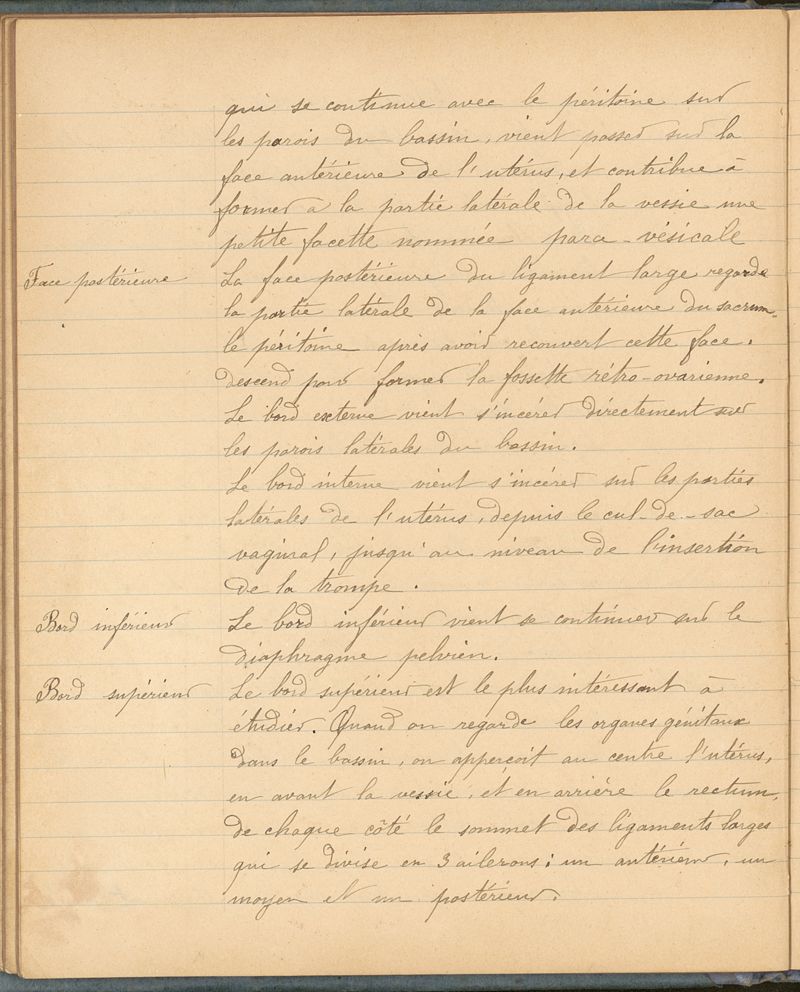 qui se continue avec le péritoine sur
les parois du bassin, vient passer sur la
face antérieure de l'utérus, et contribue à
former à la partie latérale de la vessie une
petite facette nommée para-vésicale
Face postérieure
La face postérieure du ligament large regarde
la partie latérale de la face antérieure du sacrum.
le péritoine après avoir recouvert cette face.
descend pour former la fossette rétro-ovarienne.
Le bord externe vient s'incérer directement sur
les parois latérales du bassin.
Le bord interne vient s'incérer sur les parties
latérales de l'utérus, depuis le cul-de-sac
vaginal, jusqu'au niveau de l'insertion
de la trompe.
Bord inférieur
Le bord inférieur vient se continuer sur le
diaphragme pelvien.
Bord supérieur
Le bord supérieur est le plus intéressant à
étudier. Quand on regarde les organes génitaux
dans le bassin, on apperçoit au centre l'utérus,
en avant la vessie, et en arrière le rectum,
de chaque côté le sommet des ligaments larges
qui se divise en 3 ailerons: un antérieur, un
moyen et un postérieur.